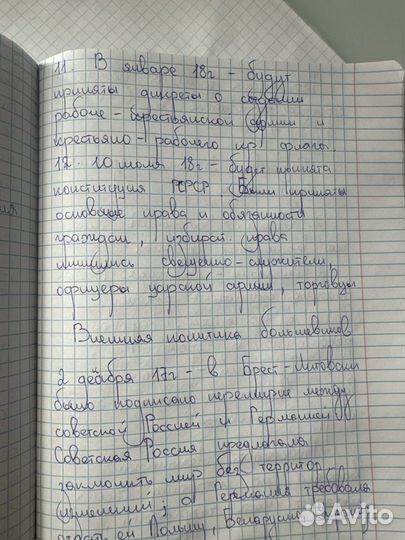 11. В январе 18г - будут
приняты дикреты о создании
рабоче - крестьянской армии и
крестьяно - рабочего кр. флота.
12. 10 июля 18г - будут принята
конституция РСФСР. Были приняты
основные права и обязаности
граждан, избират. права
лишились священно-служители,
офицеры царской армии, торговцы
Внешняя политика большевиков
2 декабря 17г - в Брест-Литовске
было подписано перемирие между
советской Россией и Германией
Советская Россия предлагала
заключить мир без территор.
изменений, а Германия требовала
отдать ей Польшу, Белоруссию
Avito